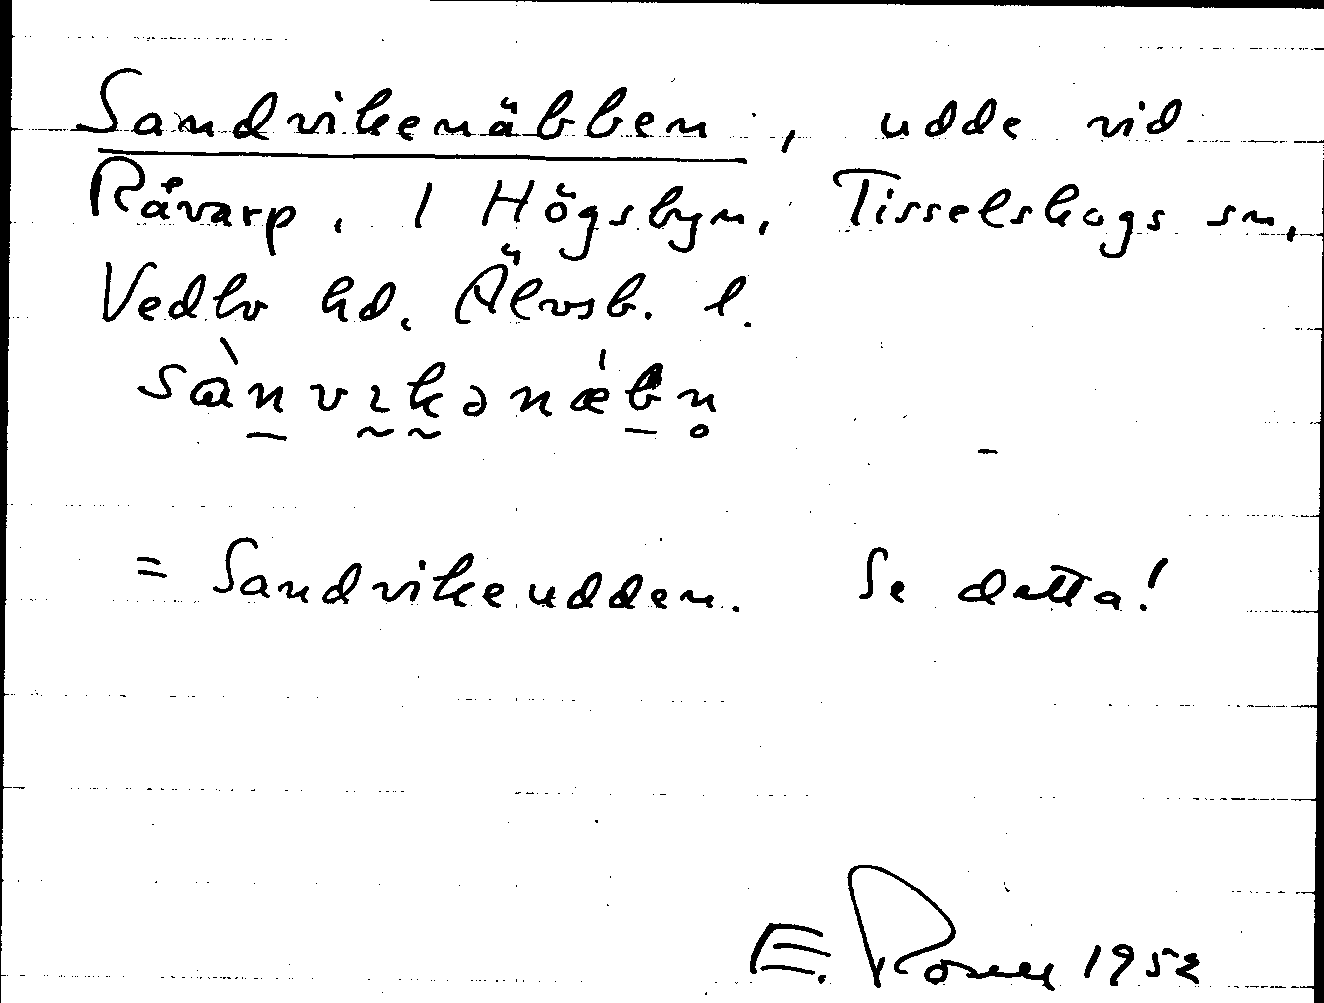 Sandvikenäbben, udde vid
Råvarp, 1 Högsbyn, Tisselskogs sn,
Vedbo hd, Älvsb. l.
sànvıkənǽbn̥
= Sandvikeudden. Se detta!
E. 1952